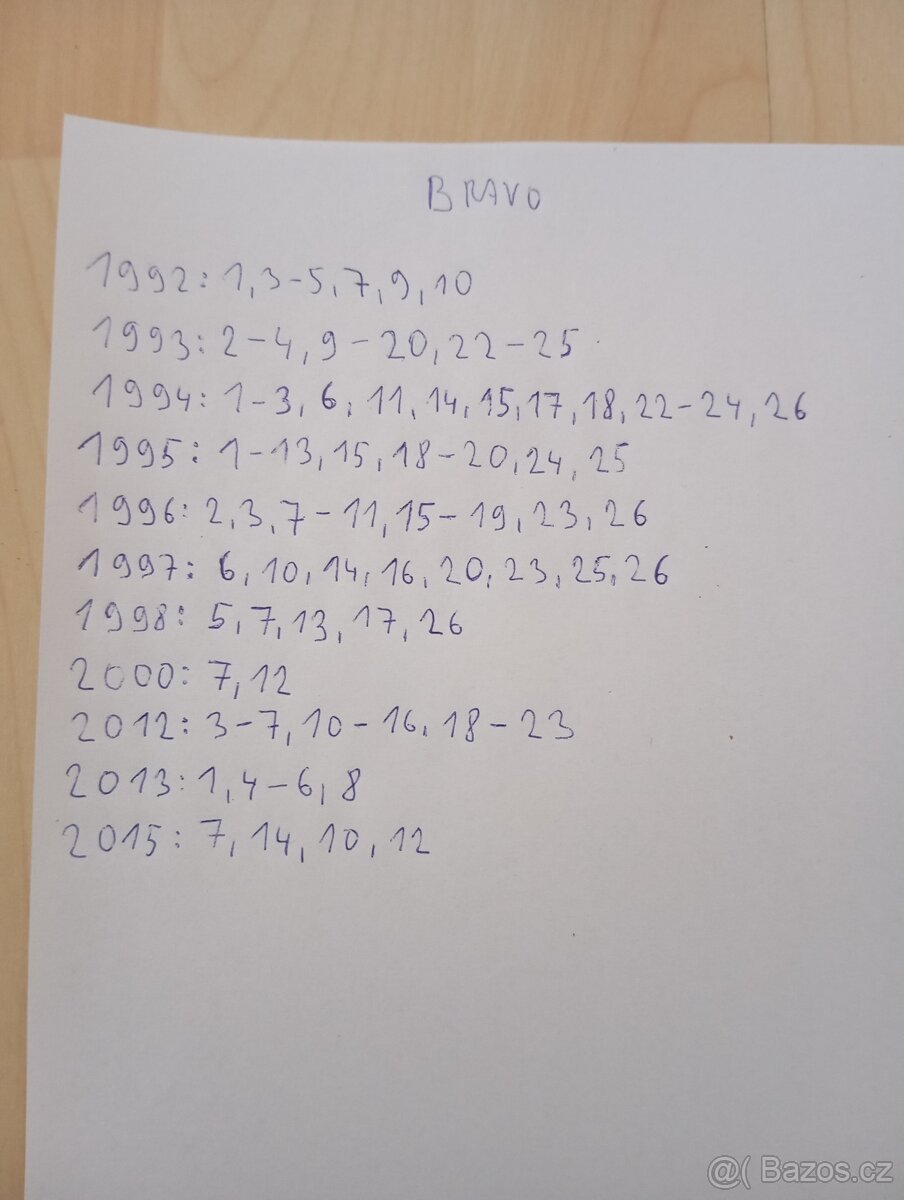 BRAVO
1992: 1,3-5,7,9,10
1993: 2-4,9-20,22-25
1994: 1-3,6,11,14,15,17,18,22-24,26
1995: 1-13,15,18-20,24,25
1996: 2,3,7-11,15-19,23,26
1997: 6,10,14,16,20,23,25,26
1998: 5,7,13,17,26
2000: 7,12
2012: 3-7,10-16,18-23
2013: 1,4-6,8
2015: 7,14,10,12
@( Bazos.cz